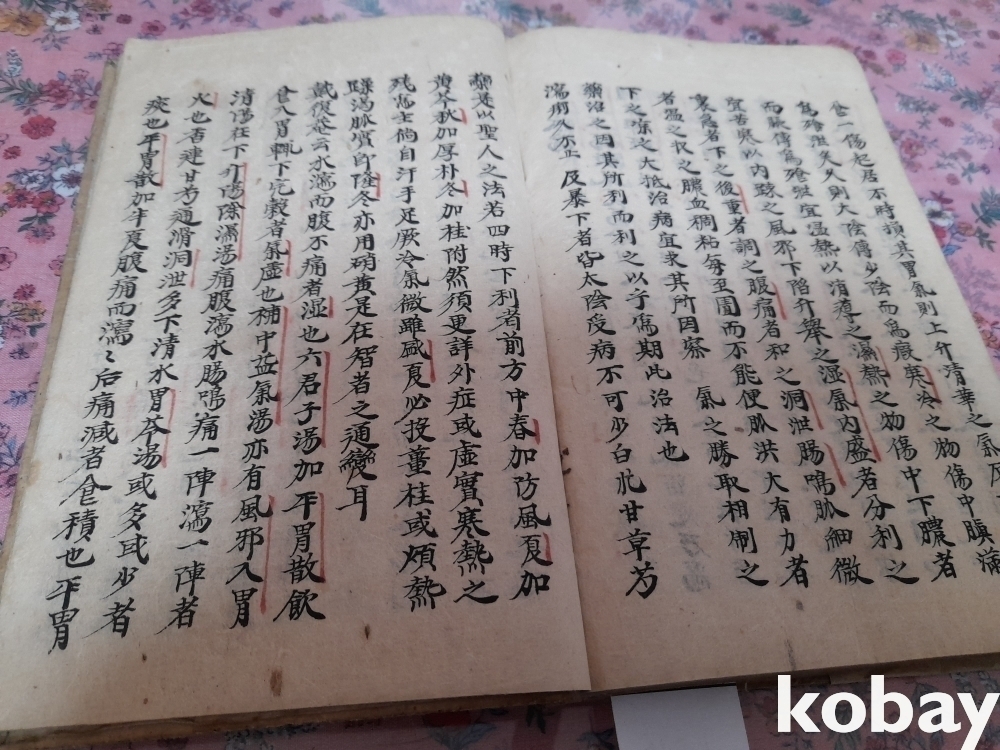 食一傷起居不時損其胃氣則上介清華之氣反
為飱泄久久則大陰傳少陰而為寒冷之物傷中瞋滿
而歐傳為飱泄宜溫熱以消導之濕熱之物傷中下膿者
宜苦寒以內疎之風邪下陷介擧之湿氣內盛者分利之
裏急者下之後重者調之腹痛者和之洞泄腸鳴脉細微
者溫之收之膿血稠粘每至圊而不能便脉洪大有力者
下之寒之大抵治病宜求其所因察 氣之勝取相制之
藥治之因其所利而利之以予為期此治法也
瀉痢久不止及暴下者皆太陰受病不可少白朮甘草芍
藥是以聖人之法若四時下利者前方中春加防風夏加
黃芩秋加厚朴冬加桂附然須更詳外症或虛實寒熱之
殘怠士倘自汗手足厥冷氣微雖盛夏必投薑桂或煩熱
躁渴脉實卽隆冬亦用硝黃是在智者之通變耳
戴復菴云水瀉而腹不痛者湿也六君子湯加平胃散飮
食入胃輒下完穀者氣虛也補中益氣湯亦有風邪入胃
清陽在下介陽除濕湯痛服瀉水腸鳴痛一陣瀉一陣者
火也香連甘芍通滑洞泄多下清水胃苓湯或多或少者
痰也平胃散加半夏腹痛而瀉〻后痛減者食積也平胃
kobay